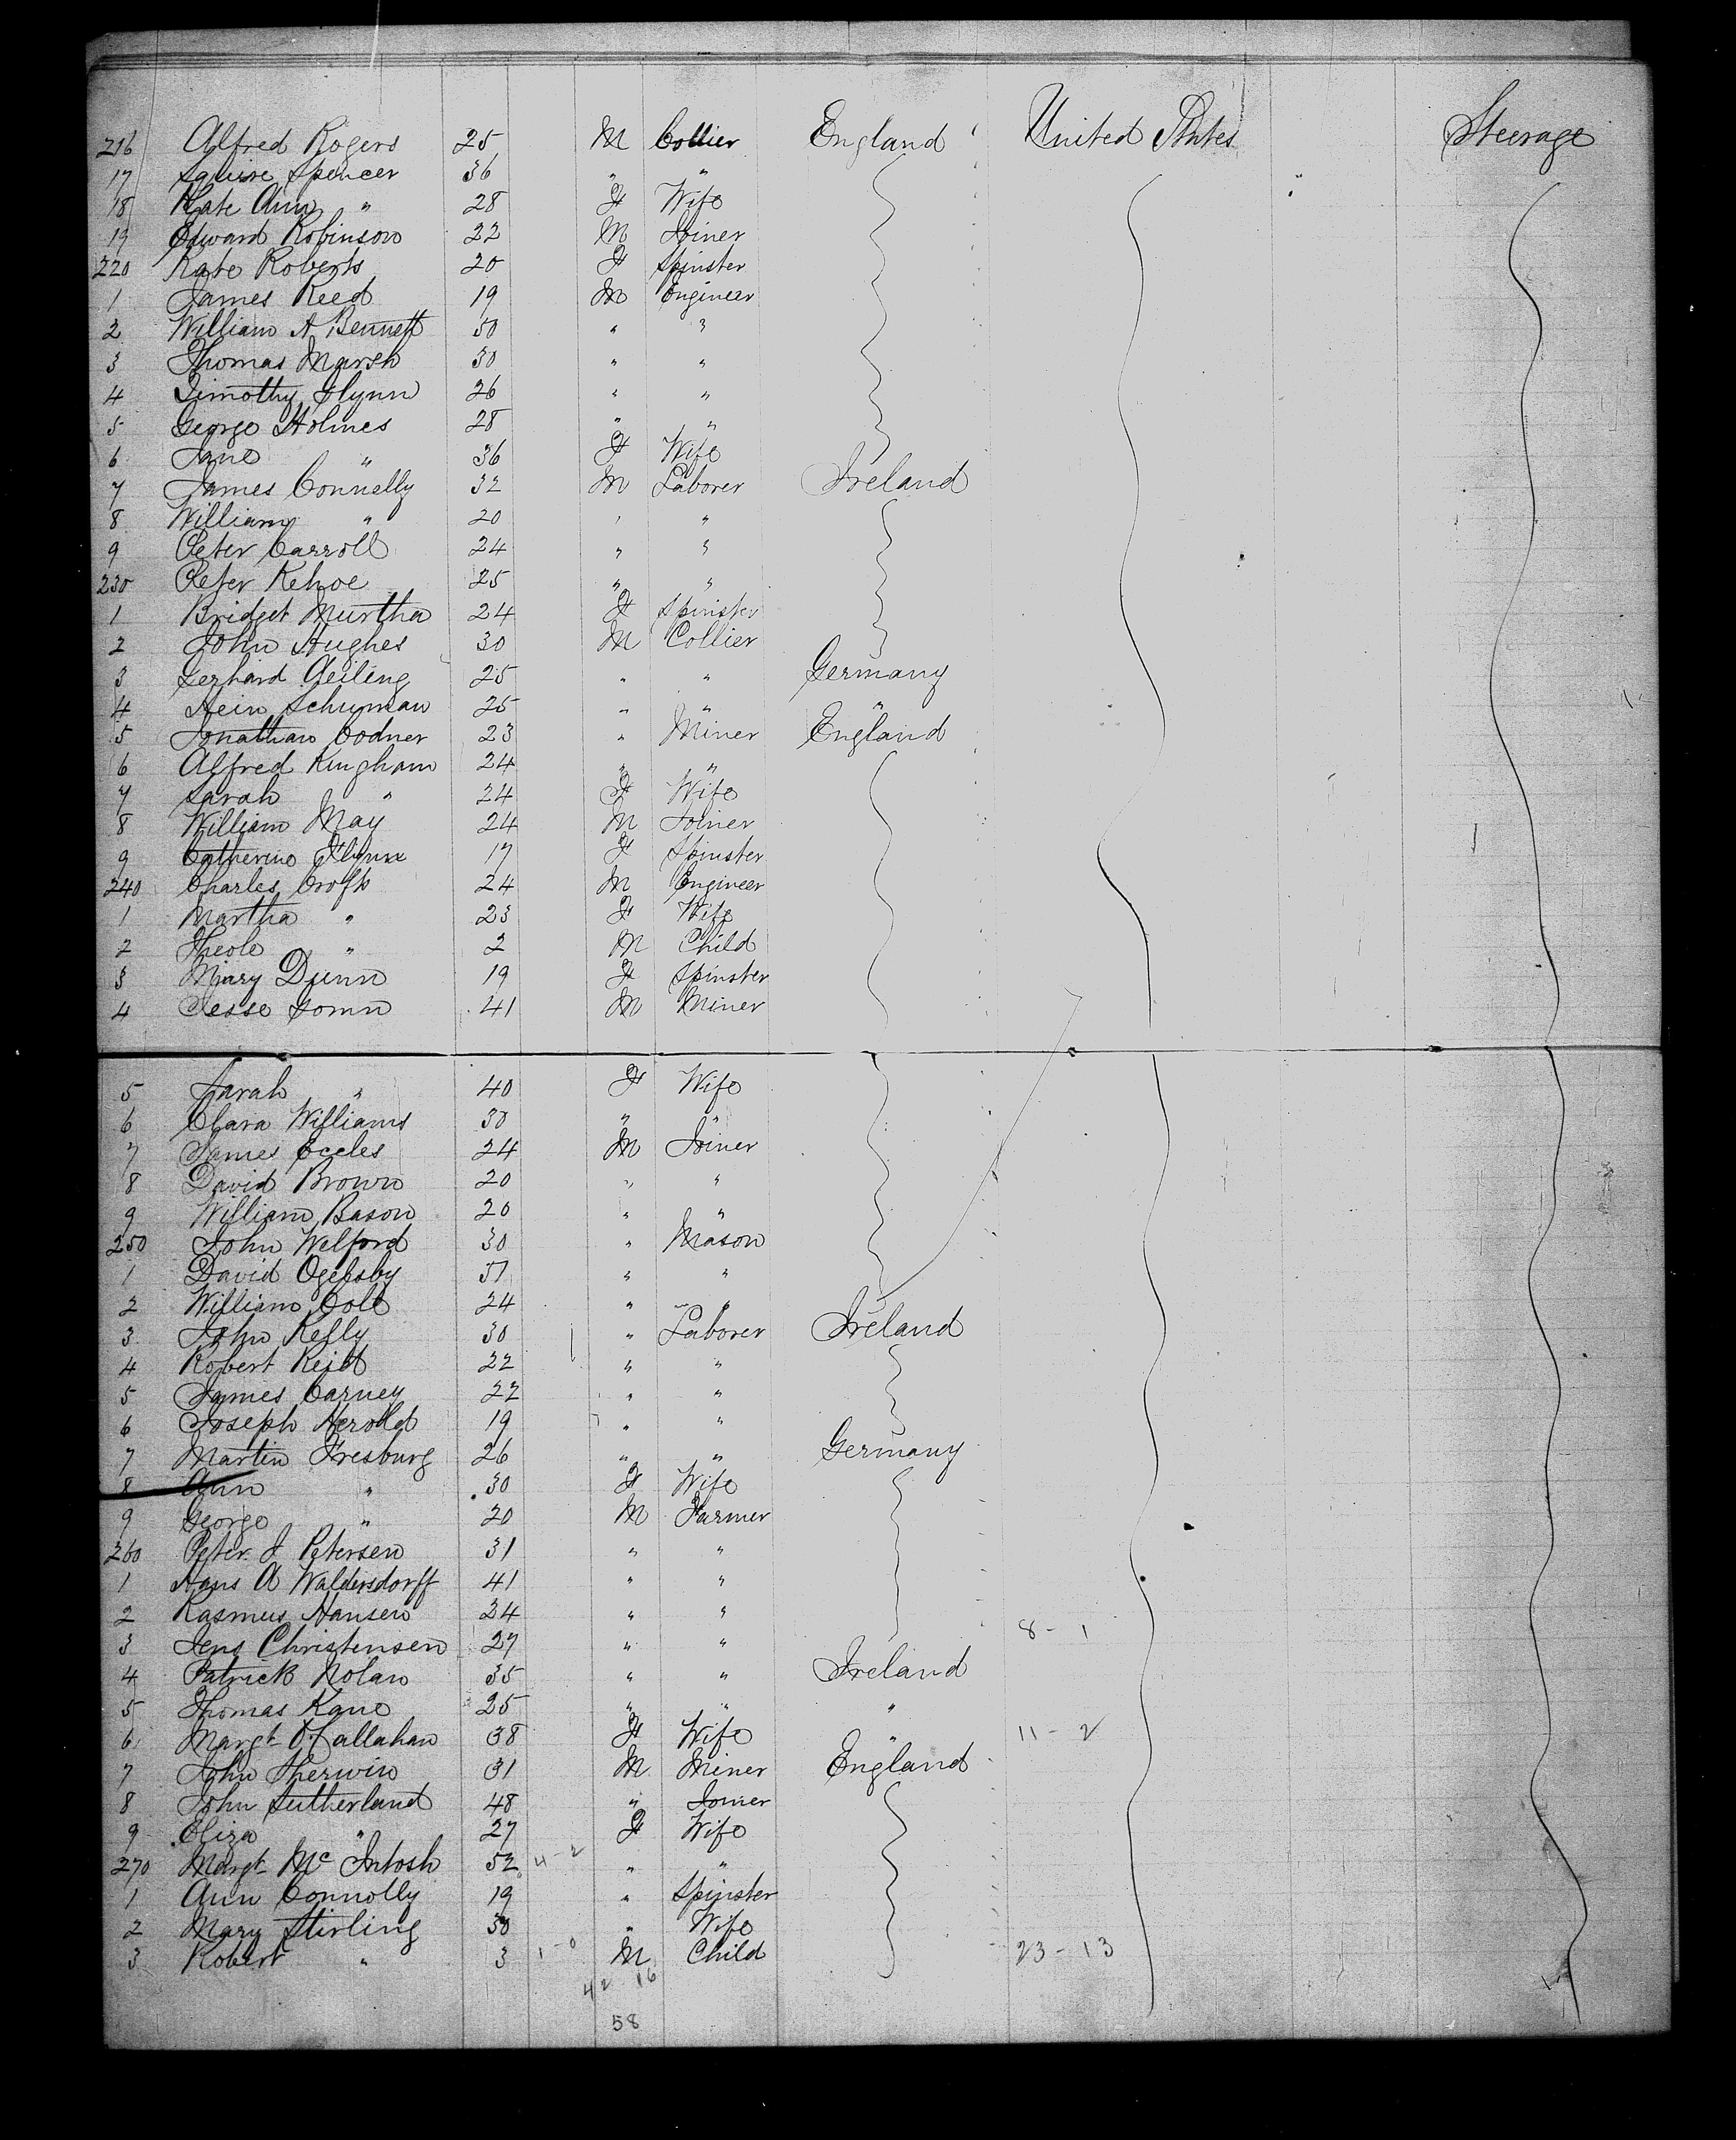 216 Alfred Rogers 25 M Collier England United States Steerage
17 Squire Spencer 36 " "
18 Kate Ann " 28 F Wife
19 Edward Robinson 22 M Joiner
220 Kate Roberts 20 F Spinster
1 James Reed 19 M Engineer
2 William A Bennett 50 " "
3 Thomas Marsh 30 " "
4 Timothy Flynn 26 " "
5 George Holmes 28 " "
6 Jane " 36 F Wife
7 James Connelly 32 M Laborer Ireland
8 William " 20 " "
9 Peter Carroll 24 " "
230 Peter Kehoe 25 " "
1 Bridget Murtha 24 F Spinster
2 John Hughes 30 M Collier
3 Gerhard Geiling 25 " " Germany
4 Hein Schuman 25 " " "
5 Jonathan Codner 23 " Miner England
6 Alfred Kingham 24 " "
7 Sarah " 24 F Wife
8 William May 24 M Joiner
9 Catherine Flynn 17 F Spinster
240 Charles Crofts 24 M Engineer
1 Martha " 23 F Wife
2 " 2 M Child
3 Mary Dunn 19 F Spinster
4 Jesse 41 M Miner
5 Sarah " 40 F Wife
6 Clara Williams 30 " "
7 James Eccles 24 M Joiner
8 David Brown 20 " "
9 William Bason 20 " "
250 John Welford 30 " Mason
1 David 51 " "
2 William Cole 24 " "
3 John Kelly 30 " Laborer Ireland
4 Robert Reid 22 " "
5 James Carney 22 " "
6 Joseph Herold 19 " "
7 Martin Fresburg 26 " " Germany
8 Ann " 30 F Wife
9 George " 20 M Farmer
260 Peter J Petersen 31 " "
1 Hans A Waldersdorff 41 " "
2 Rasmus Hansen 24 " "
3 Jens Christensen 27 " " 8 - 1
4 Patrick Nolan 35 " " Ireland
5 Thomas Kane 25 " " "
6 Margt O'Callahan 38 F Wife " 11 - 2
7 John Sherwin 31 M Miner England
8 John Sutherland 48 " Joiner
9 Eliza " 27 F Wife
270 Margt McIntosh 52 4 - 2 " "
1 Ann Connolly 19 " Spinster
2 Mary Stirling 30 " Wife
3 Robert " 3 1 - 0 M Child 23 - 13
42 16
58